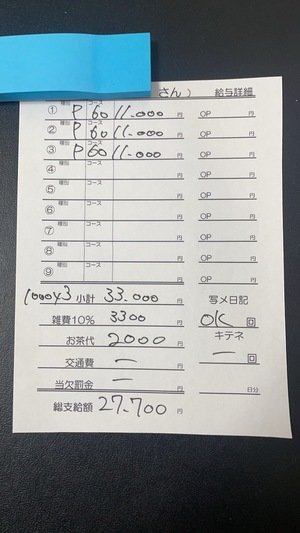 さん) 給与詳細
① 種別 P コース 60 11.000 円 OP 円
② 種別 P コース 60 11.000 円 OP 円
③ 種別 P コース 60 11.000 円 OP 円
④ 種別 コース 円 OP 円
⑤ 種別 コース 円 OP 円
⑥ 種別 コース 円 OP 円
⑦ 種別 コース 円 OP 円
⑧ 種別 コース 円 OP 円
⑨ 種別 コース 円 OP 円
小計 33.000 円 写メ日記
雑費10% 3300 円 OK 回
お茶代 2000 円 キテネ
交通費 ー 円 ー 回
当欠罰金 ー 円 日分
総支給額 27.700 円